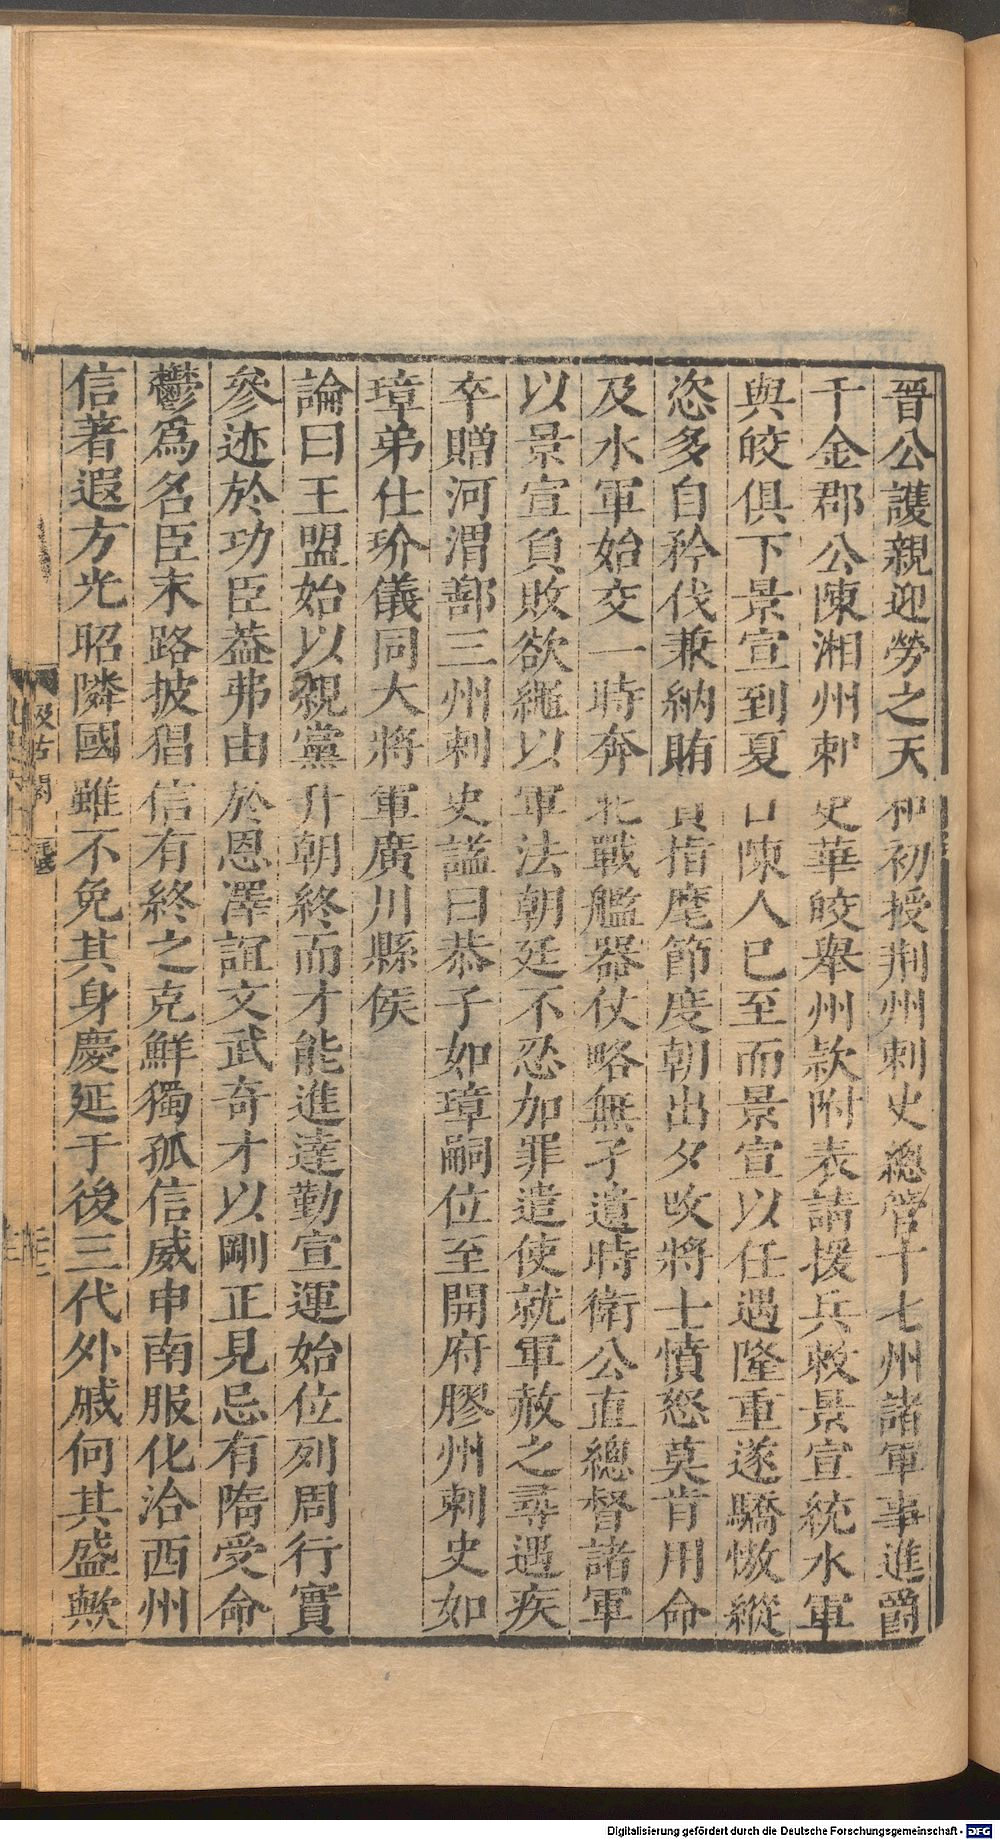 晉公護親迎勞之天和初授荆州刺史總管十七州諸軍事進爵
千金郡公陳湘州刺史華皎舉州款附表請援兵敕景宣統水軍
與皎俱下景宣到夏口陳人已至而景宣以任遇隆重遂驕慠縱
恣多自矜伐兼納賄貨指麾節度朝出夕改將士憤怒莫肯用命
及水軍始交一時奔北戰艦器仗略無孑遺時衛公直總督諸軍
以景宣負敗欲繩以軍法朝廷不忍加罪遣使就軍赦之尋遇疾
卒贈河渭鄯三州刺史謚曰恭子如璋嗣位至開府膠州刺史如
璋弟仕玠儀同大將軍廣川縣侯
論曰王盟始以親黨升朝終而才能進達勤宣運始位列周行實
參迹於功臣葢弗由於恩澤誼文武奇才以剛正見忌有隋受命
鬱為名臣末路披猖信有終之克鮮獨孤信威申南服化洽西州
信著遐方光昭隣國雖不免其身慶延于後三代外戚何其盛歟
Digitalisierung gefördert durch die Deutsche Forschungsgemeinschaft - DFG